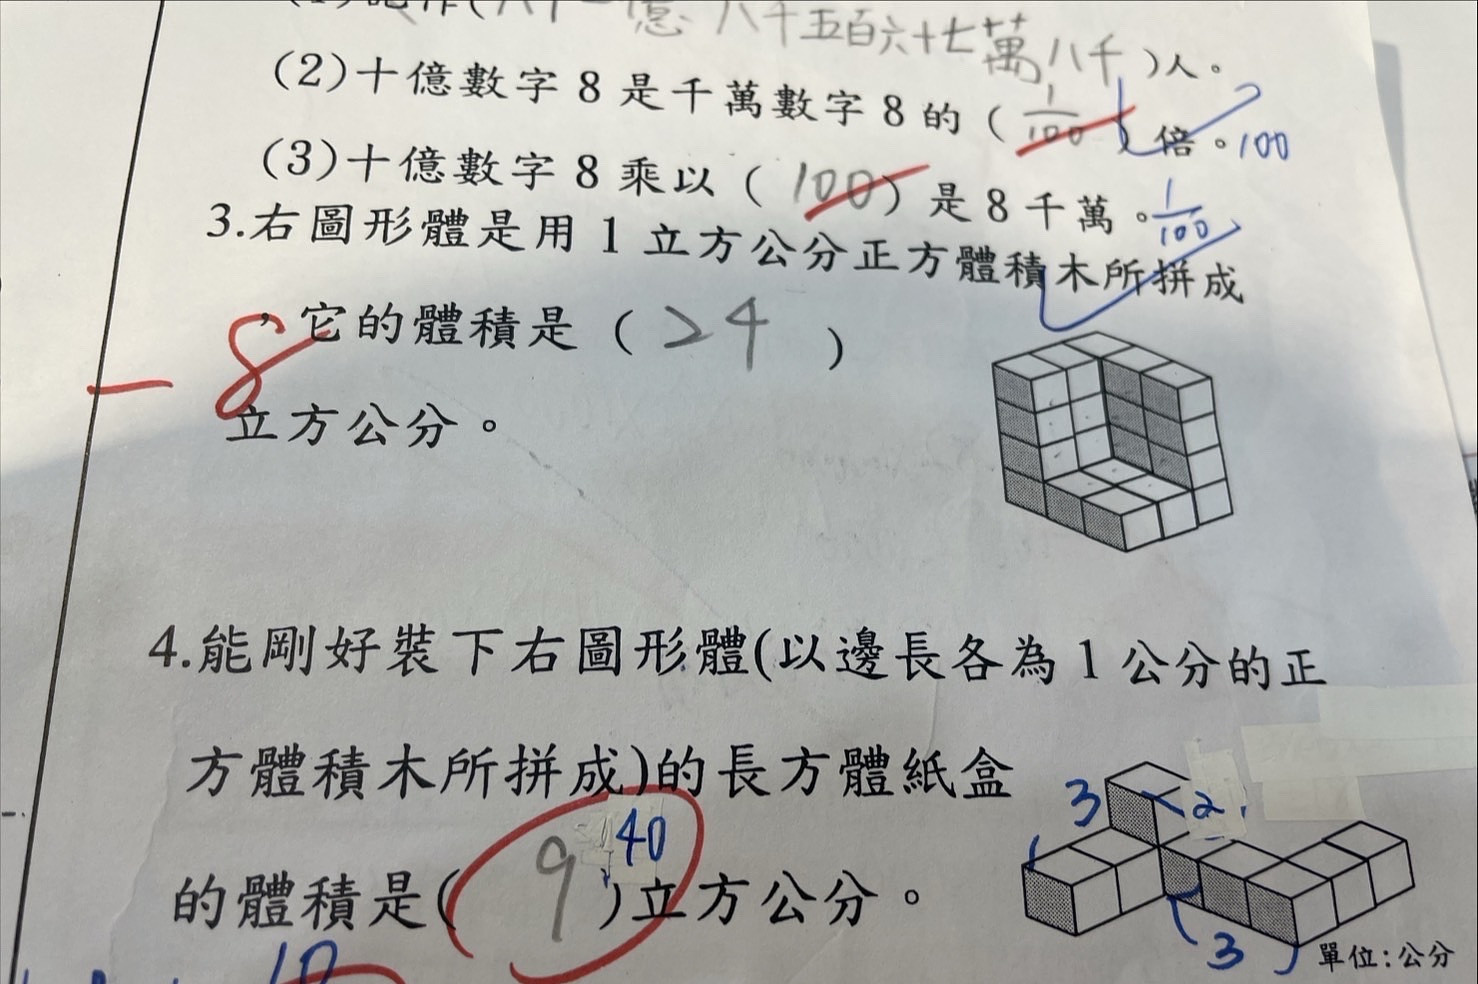 (1)記作(八十一億 八千五百六十七萬八千)人。
(2)十億數字8是千萬數字8的(1/100)倍。100
(3)十億數字8乘以(100)是8千萬。1/100
3.右圖形體是用1立方公分正方體積木所拼成
，它的體積是(24)
-8
立方公分。
4.能剛好裝下右圖形體(以邊長各為1公分的正
方體積木所拼成)的長方體紙盒
3 2
的體積是(9 40)立方公分。
3
單位:公分
10